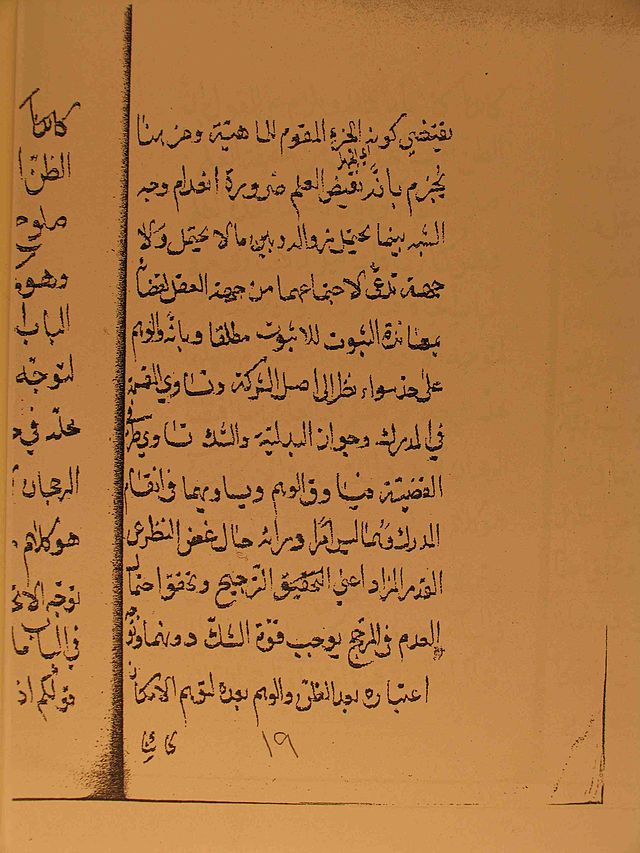 يقتضي كونه الجزء المقوم للماهية وحز بهنا
يجزم بانه نقيض العلم ضرورة انعدام وجه
الشبه بينهما يحتمل زواله وبين ما لا يحتمل ولا
جهة تدعى لاجتماعهما من جهة العقل لقضائه
بمعاندة الثبوت للاثبوت مطلقا وبانه والوهم
على حد سواء نظرا الى اصل الشركة وتساوي القسمة
في المدرك وجواز البدلية والشك تساوي طرفي
القضية فيساوق الوهم ويساويهما في انقسام
المدرك حال غض النظر عن
القدر الزاد اعني التحقيق الترجيح وتحقق احتمال
العدم في المرجح يوجب قوة الشك دونهما
اعتباره بعد الظن والوهم بعده لتوهم الامكان
١٩
كائنا
كائنا
الظن
ملو
وهو
الباب
لتوجه
في
الرجحان
هو كلام
توجه
في الباب ما
قولكم اذ